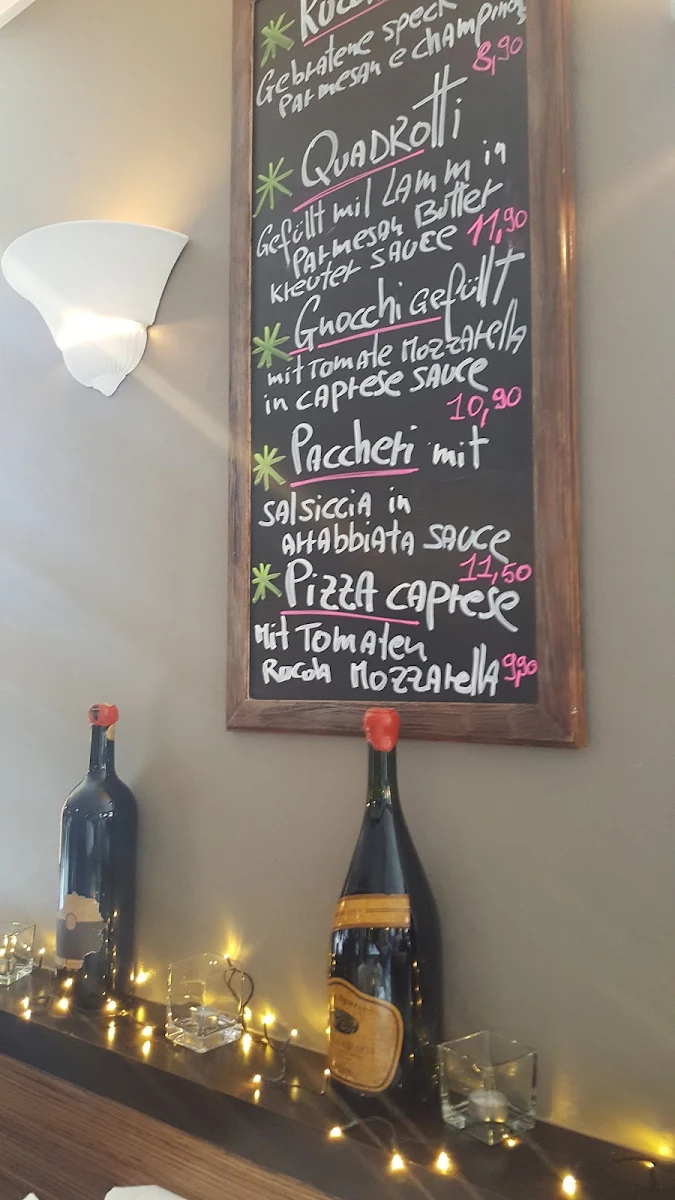 Gebratene speck
Parmesan e champinos
8,90
QUADROTTI
Gefüllt mil LAMM in
PARMESAN Butter
kreuter SAUCE 11,90
Gnocchi Gefüllt
mit Tomate MOZZARELLA
in CAPRESE SAUCE
10,90
Paccheri mit
SALSICCIA in
ARRABBIATA SAUCE
11,50
PIZZA CAPRESE
Mit TOMATEN
RUCOLA MOZZARELLA 9,90